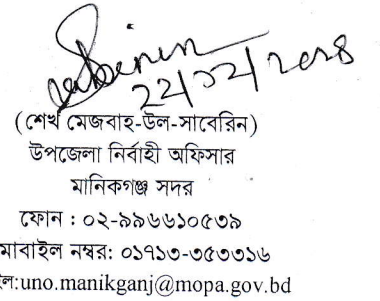 22/02/2024
(শেখ মেজবাহ-উল-সাবেরিন)
উপজেলা নির্বাহী অফিসার
মানিকগঞ্জ সদর
ফোন : ০২-৯৯৬৬১০৫৩৯
মাবাইল নম্বর: ০১৭১৩-৩৫৩৩১৬
ল:uno.manikganj@mopa.gov.bd